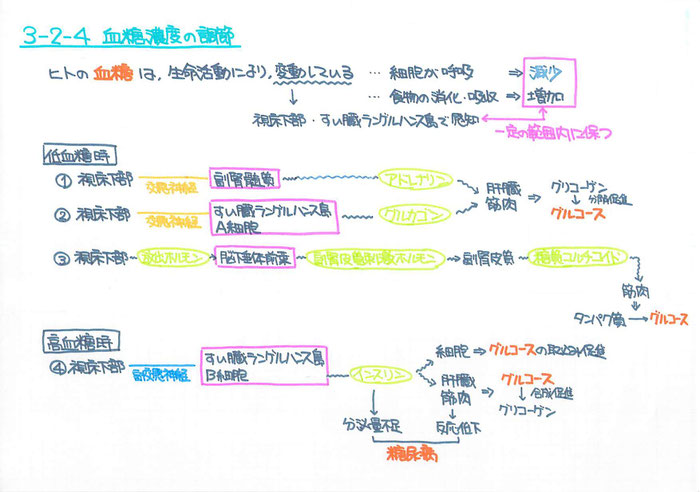 3-2-4 血糖濃度の調節
ヒトの血糖は、生命活動により、変動している … 細胞が呼吸 ⇒ 減少
… 食物の消化・吸収 ⇒ 増加
↓
視床下部・すい臓ランゲルハンス島で感知
一定の範囲内に保つ
低血糖時
① 視床下部 交感神経 副腎髄質 アドレナリン
② 視床下部 交感神経 すい臓ランゲルハンス島 A細胞 グルカゴン
肝臓 筋肉 ⇒ グリコーゲン
↓分解促進
グルコース
③ 視床下部 放出ホルモン 脳下垂体前葉 副腎皮質刺激ホルモン → 副腎皮質 糖質コルチコイド
筋肉
↓
タンパク質 → グルコース
高血糖時
④ 視床下部 副交感神経 すい臓ランゲルハンス島 B細胞 インスリン
細胞 ⇒ グルコースの取込み促進
肝臓 筋肉 ⇒ グルコース
↓合成促進
グリコーゲン
分泌量不足 反応低下
糖尿病